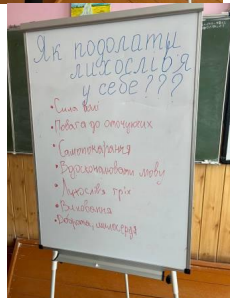 Як подолати
лихослів'я
у себе???
• Сила волі
• Повага до оточуючих
• Самопокарання
• Вдосконалювати мову
• Лихослів'я гріх
• Виховання
• Доброта, милосердя